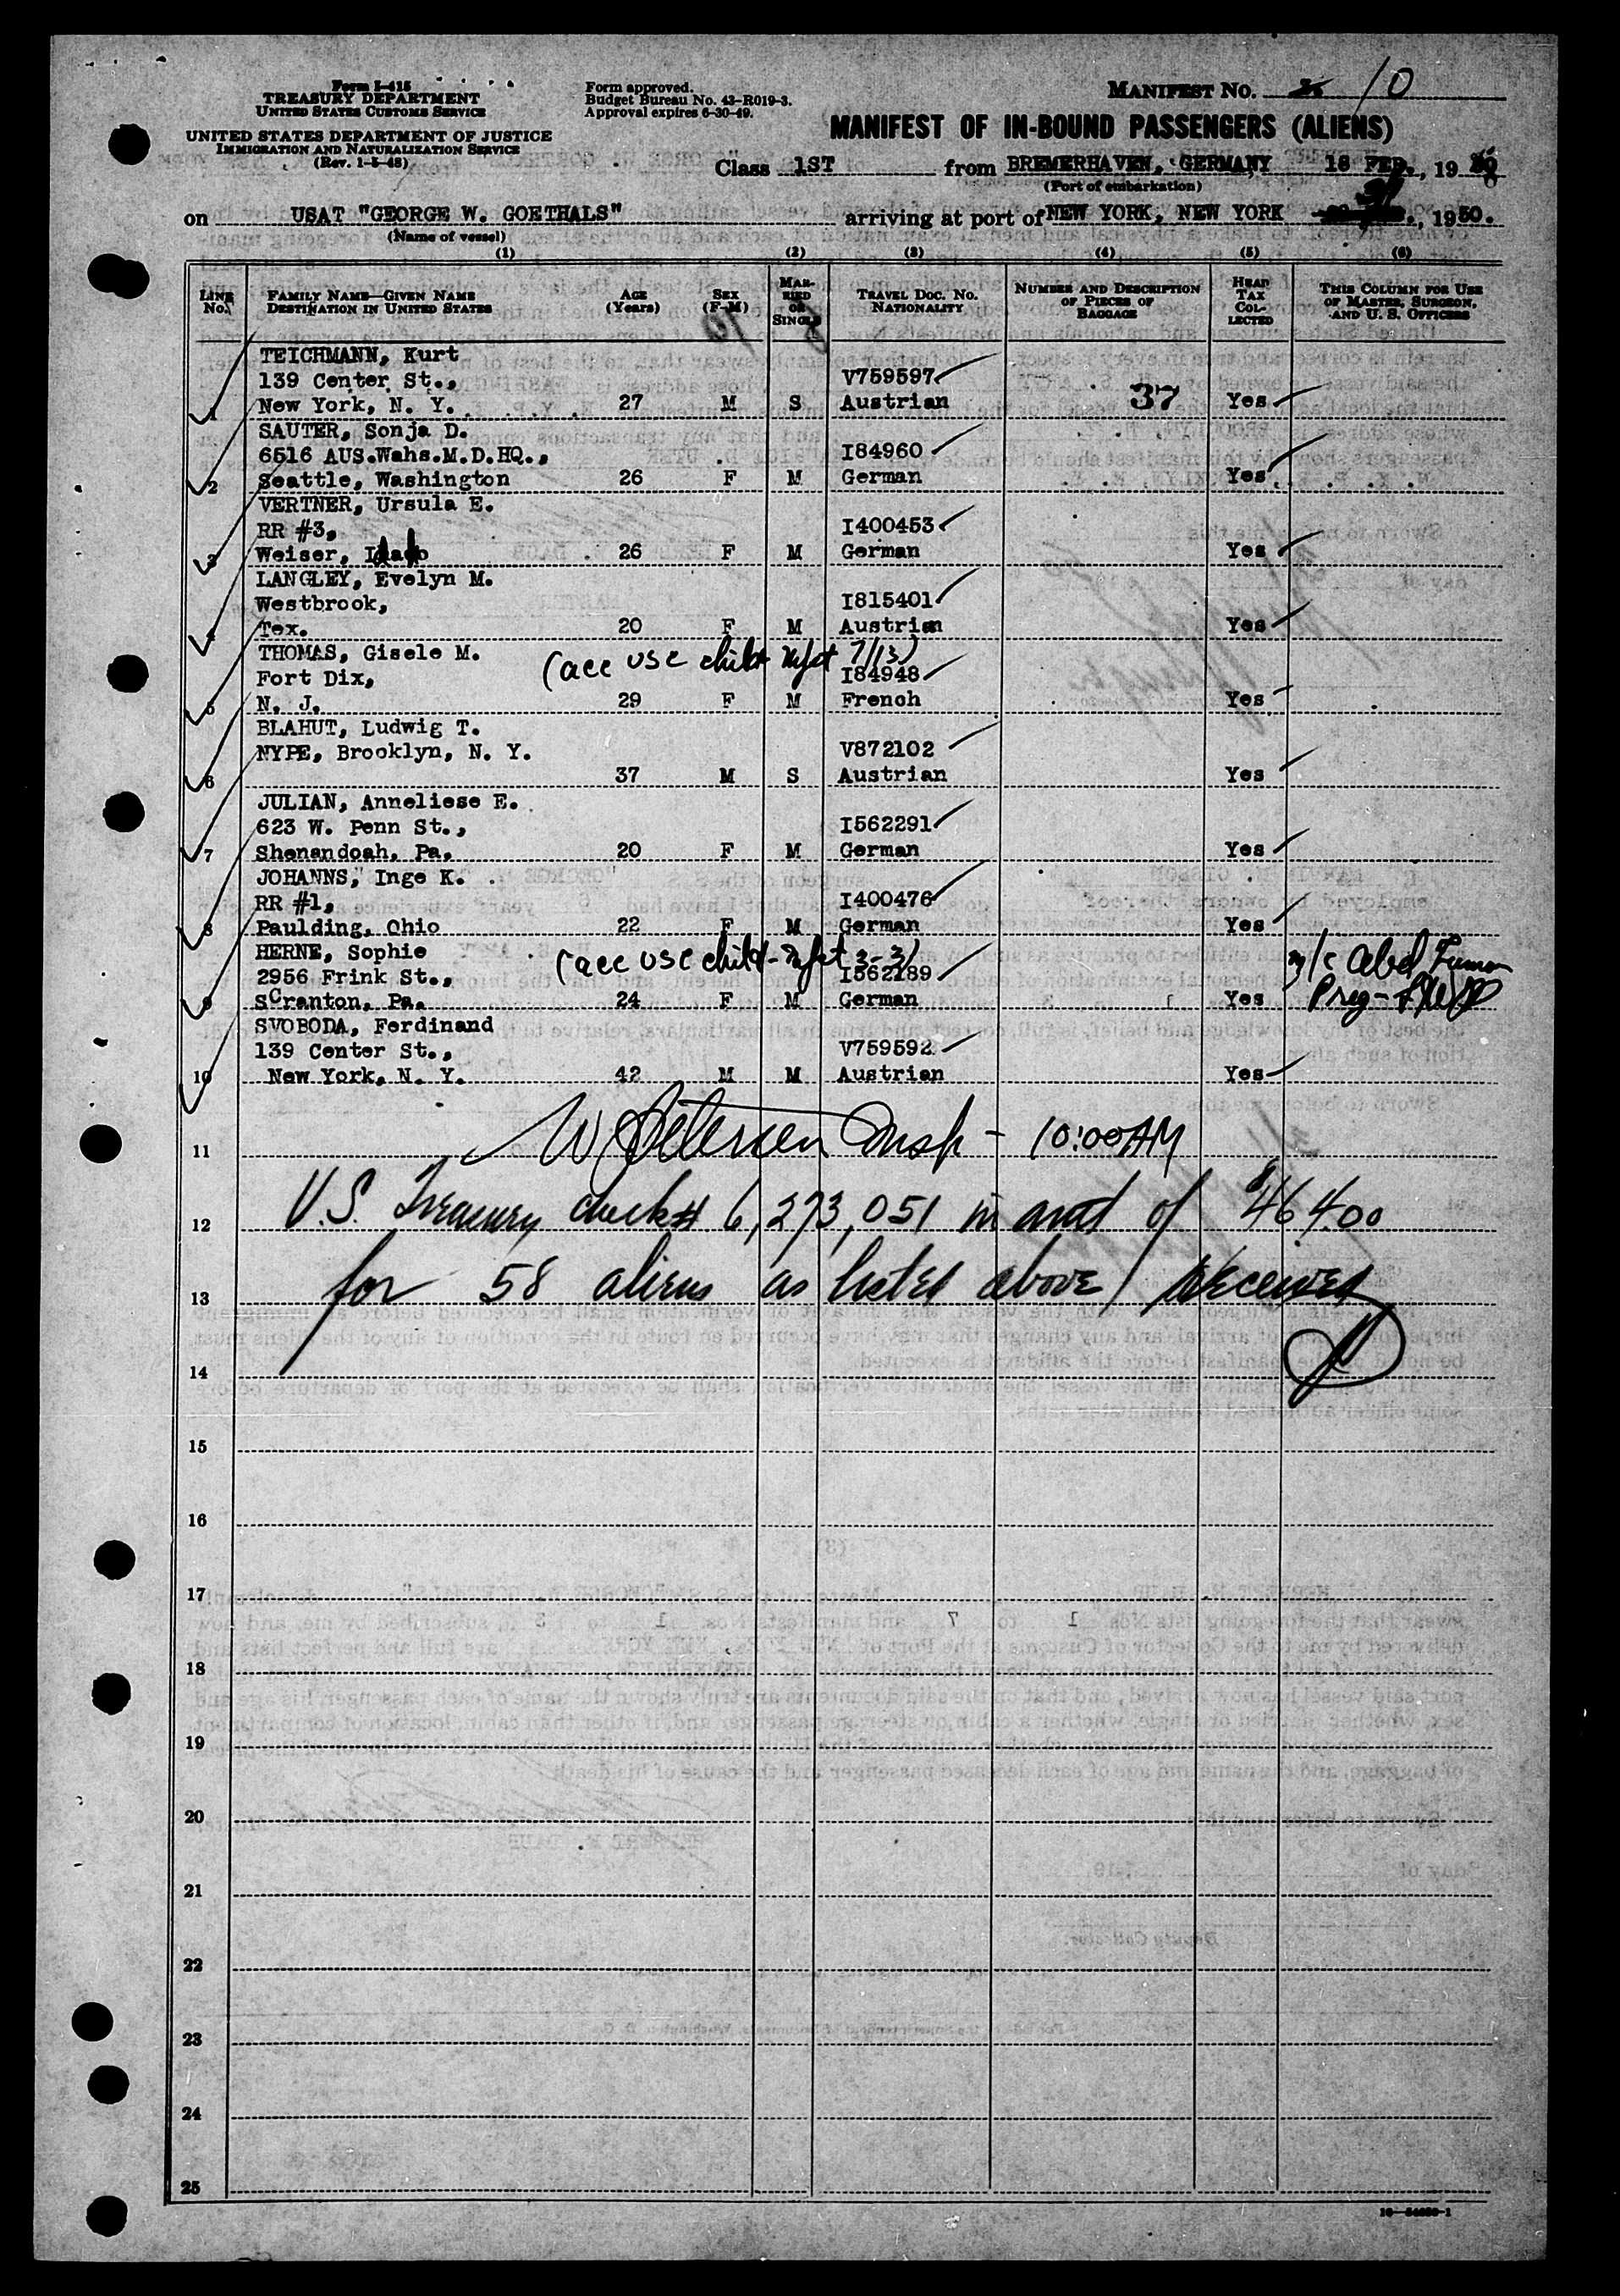 Form I-415
TREASURY DEPARTMENT
UNITED STATES CUSTOMS SERVICE
UNITED STATES DEPARTMENT OF JUSTICE
IMMIGRATION AND NATURALIZATION SERVICE
(Rev. 1-5-48)
Form approved.
Budget Bureau No. 43-R019-3.
Approval expires 6-30-49.
MANIFEST NO. 10
MANIFEST OF IN-BOUND PASSENGERS (ALIENS)
Class 1ST from BREMERHAVEN, GERMANY 18 FEB., 19
(Port of embarkation)
on USAT "GEORGE W. GOETHALS" arriving at port of NEW YORK, NEW YORK , 1950.
(Name of vessel)
(1) (2) (3) (4) (5) (6)
LINE No. FAMILY NAME—GIVEN NAME DESTINATION IN UNITED STATES AGE (Years) SEX (F-M) MARRIED OR SINGLE TRAVEL DOC. NO. NATIONALITY NUMBER AND DESCRIPTION OF PIECES OF BAGGAGE HEAD TAX COLLECTED THIS COLUMN FOR USE OF MASTER, SURGEON, AND U. S. OFFICERS
TEICHMANN, Kurt
139 Center St., V759597
1 New York, N. Y. 27 M S Austrian 37 Yes
SAUTER, Sonja D.
6516 AUS.Wahs.M.D.HQ., I84960
2 Seattle, Washington 26 F M German Yes
VERTNER, Ursula E.
RR #3, I400453
3 Weiser, Idaho 26 F M German Yes
LANGLEY, Evelyn M.
Westbrook, I815401
4 Tex. 20 F M Austrian Yes
THOMAS, Gisele M. (acc USC child 7/13)
Fort Dix, I84948
5 N. J. 29 F M French Yes
BLAHUT, Ludwig T.
NYPE, Brooklyn, N. Y. V872102
6 37 M S Austrian Yes
JULIAN, Anneliese E.
623 W. Penn St., I562291
7 Shenandoah, Pa. 20 F M German Yes
JOHANNS, Inge K.
RR #1, I400476
8 Paulding, Ohio 22 F M German Yes
HERNE, Sophie (acc USC child- 3-3)
2956 Frink St., I562189
9 Scranton, Pa. 24 F M German Yes Preg-
SVOBODA, Ferdinand
139 Center St., V759592
10 New York, N. Y. 42 M M Austrian Yes
11 W Petersen Insp - 10:00 AM
12 U.S. Treasury check# 6,273,051 in amt of $464.00
13 for 58 aliens as listed above received
14
15
16
17
18
19
20
21
22
23
24
25